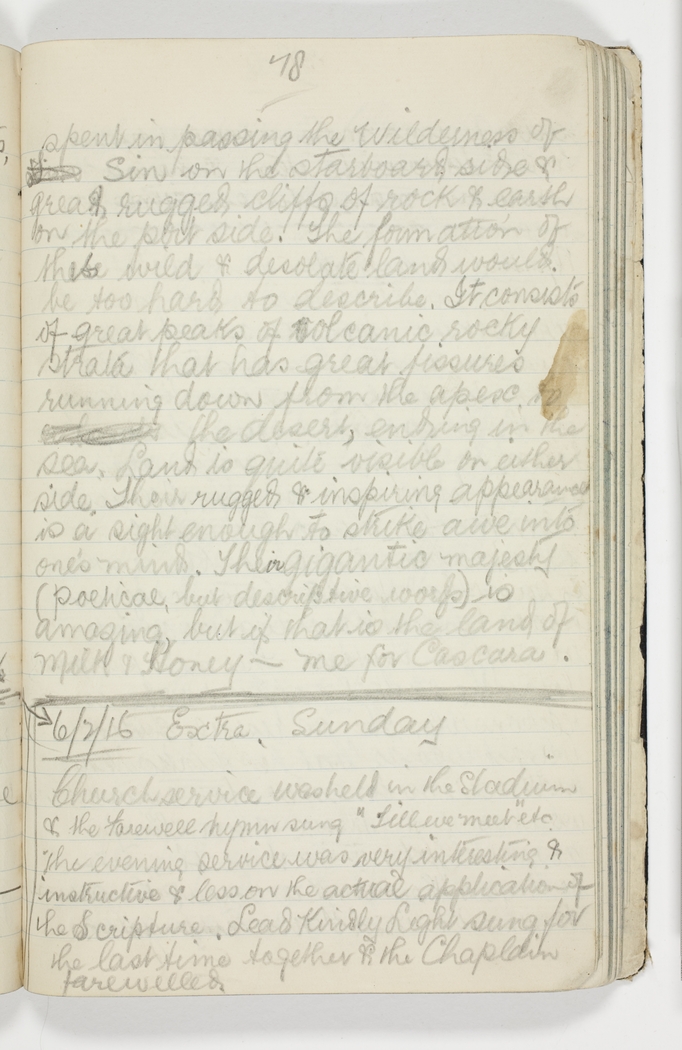 78
spent in passing the Wilderness of
Sin on the starboard side &
great, rugged cliffs of rock & earth
on the port side. The formation of
these wild & desolate land would
be too hard to describe. It consists
of great peaks of volcanic rocky
strata that has great fissures
running down from the apex to
the desert, ending in the
sea. Land is quite visible on either
side. Their rugged & inspiring appearance
is a sight enough to strike awe into
one's mind. Their gigantic majesty
(poetical, but descriptive words) is
amazing, but if that is the land of
Milk & Honey — me for Cascara.
6/2/16 Extra. Sunday
Church service was held in the Stadium
& the farewell hymn sung "Till we meet" etc.
The evening service was very interesting &
instructive & less on the actual application of
the Scripture. Lead Kindly Light sung for
the last time together & the Chaplain
farewelled.